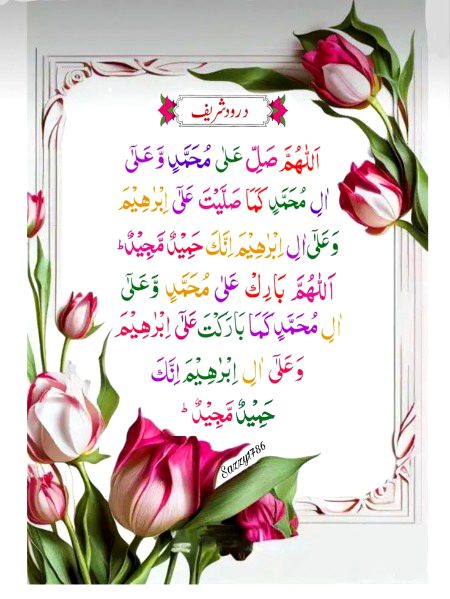 درود شریف
اَللّٰهُمَّ صَلِّ عَلٰى مُحَمَّدٍ وَّ عَلٰٓى
اٰلِ مُحَمَّدٍ كَمَا صَلَّيْتَ عَلٰٓى اِبْرٰهِيْمَ
وَعَلٰٓى اٰلِ اِبْرٰهِيْمَ اِنَّكَ حَمِيْدٌ مَّجِيْدٌؕ
اَللّٰهُمَّ بَارِكْ عَلٰى مُحَمَّدٍ وَّعَلٰٓى
اٰلِ مُحَمَّدٍ كَمَا بَارَكْتَ عَلٰٓى اِبْرٰهِيْمَ
وَعَلٰٓى اٰلِ اِبْرٰهِيْمَ اِنَّكَ
حَمِيْدٌ مَّجِيْدٌ ؕ
Sazzy1786